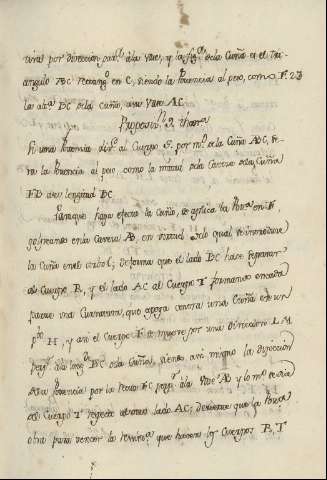 una por direccion paral.ª à la Vase, y la fig.ª de la Cuña es el tri-
angulo ABC rectang.º en C, siendo la Potencia al peso, como F. 2B
la alt.ª BC de la cuña, a su Vase AC.
Proposicn. 9. Theor.ª
Si una Potencia al Cuerpo por m.º de la Cuña ABC, se-
ra la Potencia al peso, como la mitad de la Cavesa de la Cuña
FB a su longitud BC
Para que haga efecto la Cuña, se aplica la Pot.ª en F
golpeando en la Cavesa AB, en virtud de lo qual se introduce
la Cuña en el C; de forma que el lado BC hace separar
al Cuerpo R, y el lado AC al Cuerpo T formando en cada
una Cuña en un
pto. H, y asi el Cuerpo se mueve por una direccion LM
BC de la Cuña, siendo asi mismo la direccion
de la Potencia por la recta FC à la Vase AB y lo m.º
al Cuerpo T respecto al otro lado AC; de suerte que la Pot.ª
obra para vencer la que hacen los Cuerpos R, T